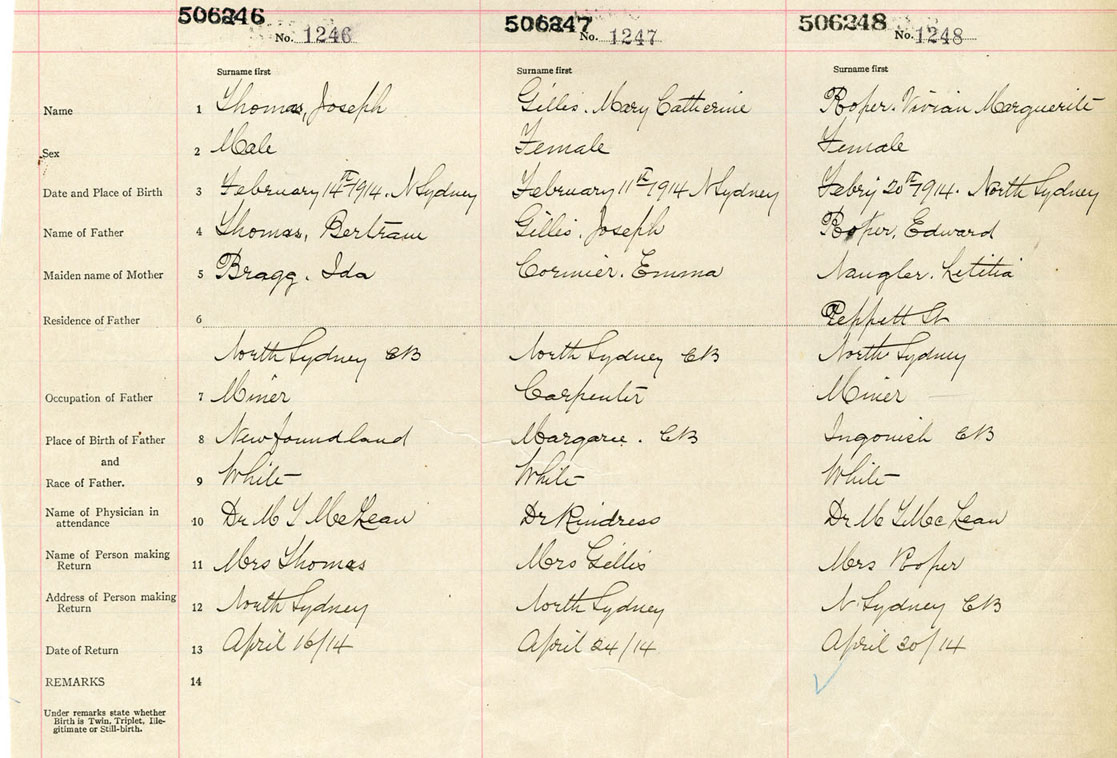 506246 506247 506248
No. 1246 No. 1247 No. 1248
Surname first Surname first Surname first
Name 1 Thomas, Joseph Gillis. Mary Catherine Roper. Vivian Marguerite
Sex 2 Male Female Female
Date and Place of Birth 3 February 14th 1914. N Sydney February 11th 1914 N Sydney Febry 20th 1914. North Sydney
Name of Father 4 Thomas, Bertram Gillis. Joseph Roper, Edward
Maiden name of Mother 5 Bragg. Ida Cormier. Emma Naugler. Letitia
Residence of Father 6 Peppett St
North Sydney CB North Sydney CB North Sydney
Occupation of Father 7 Miner Carpenter Miner
Place of Birth of Father 8 Newfoundland Margaree. CB Ingonish CB
and
Race of Father. 9 White White White
Name of Physician in
attendance 10 Dr M McLean Dr Kindress Dr M McLean
Name of Person making
Return 11 Mrs Thomas Mrs Gillis Mrs Roper
Address of Person making
Return 12 North Sydney North Sydney N Sydney CB
Date of Return 13 April 16/14 April 24/14 April 30/14
REMARKS 14
Under remarks state whether
Birth is Twin, Triplet, Ille-
gitimate or Still-birth.